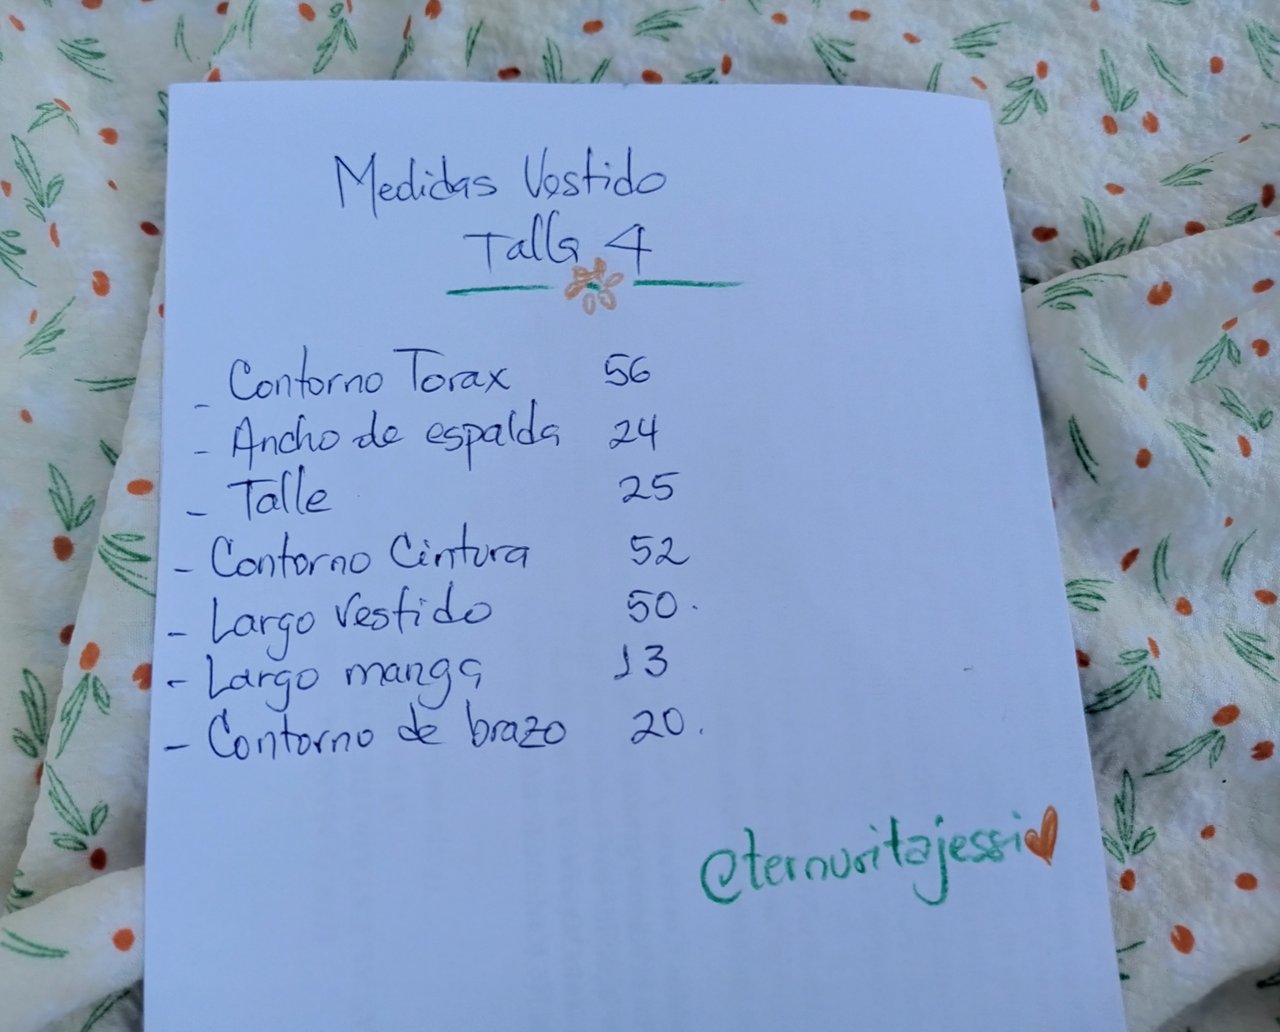 Medidas Vestido
Talla 4
- Contorno Torax 56
- Ancho de espalda 24
- Talle 25
- Contorno Cintura 52
- Largo Vestido 50.
- Largo manga 13
- Contorno de brazo 20.
@ternuritajessi